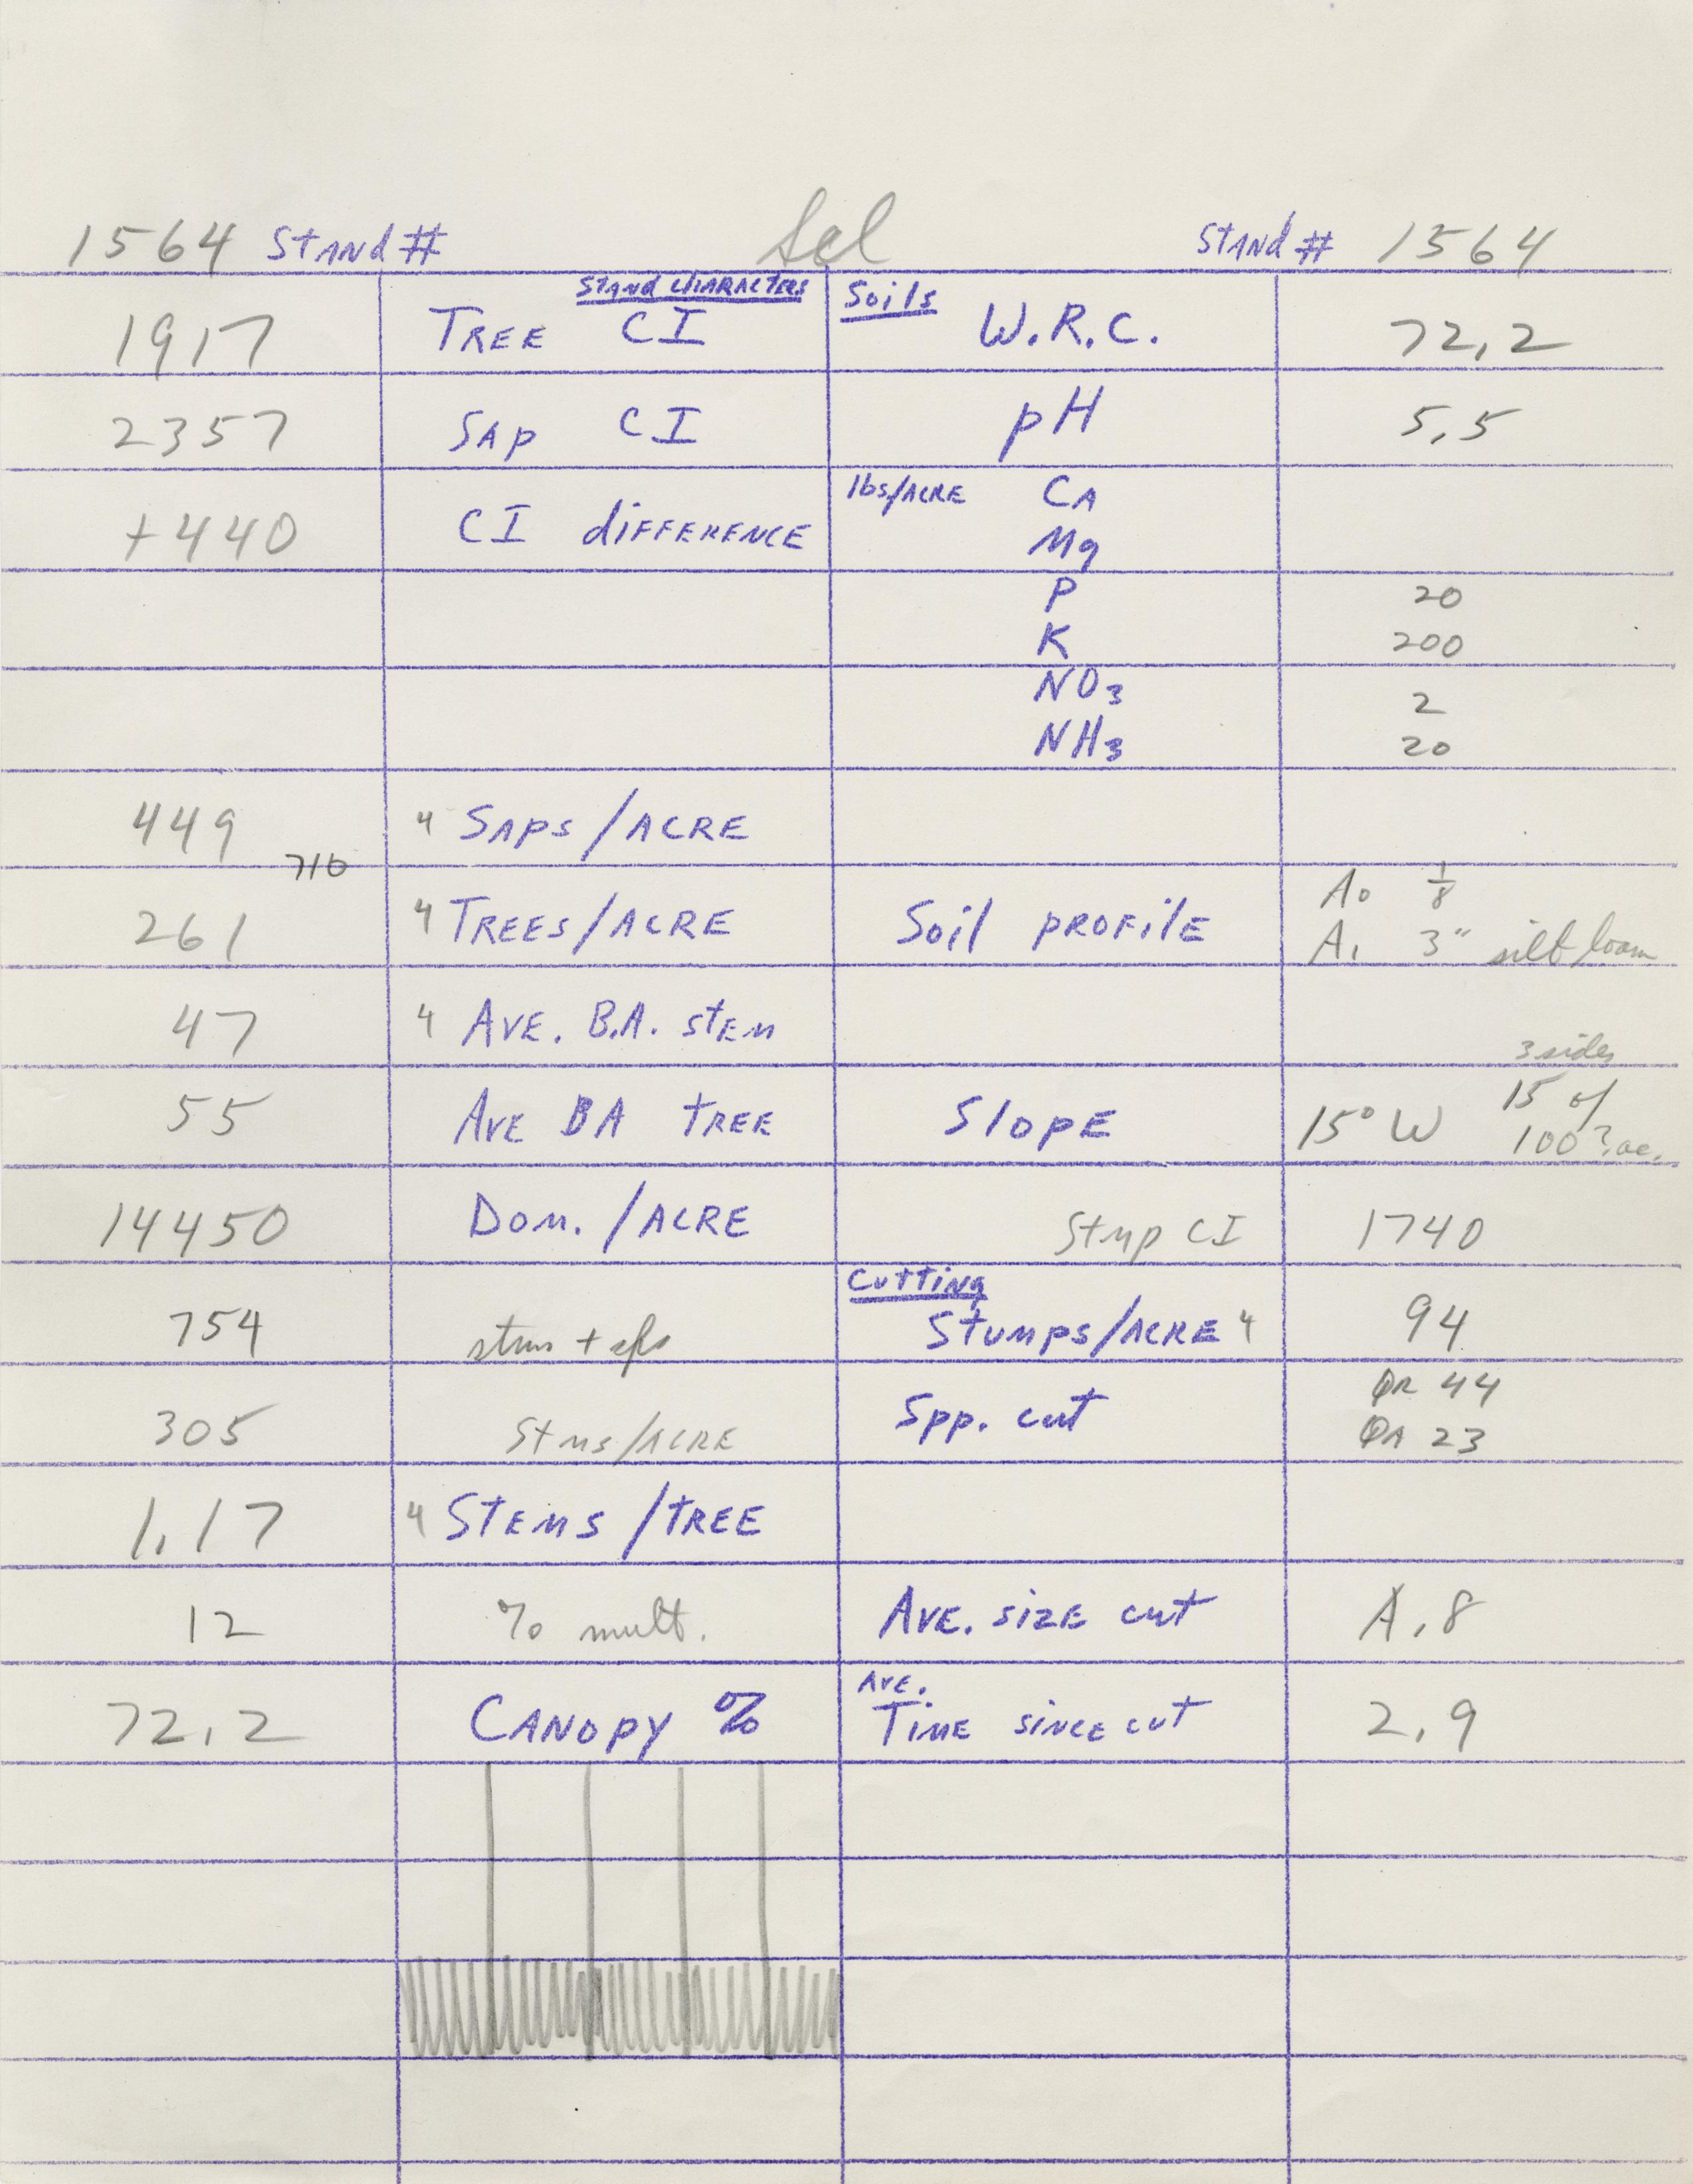 1564 Stand # Sel Stand # 1564
Stand Characters Soils
1917 Tree CI W.R.C. 72.2
2357 Sap CI pH 5.5
+440 CI difference lbs/Acre Ca
Mg
P 20
K 200
NO3 2
NH3 20
449 4 Saps/Acre
710
261 4 Trees/Acre Soil profile A0 1/8
A1 3" silt loam
47 4 Ave. B.A. stem
55 Ave BA tree Slope 15° W 3 sides
15 of
100? ac.
14450 Dom./Acre Stmp CI 1740
Cutting
754 stms + sps Stumps/Acre 4 94
305 Stms/Acre Spp. cut QR 44
QA 23
1.17 4 Stems/tree
12 % mult. Ave. size cut A.8
72.2 Canopy % Ave. Time since cut 2.9